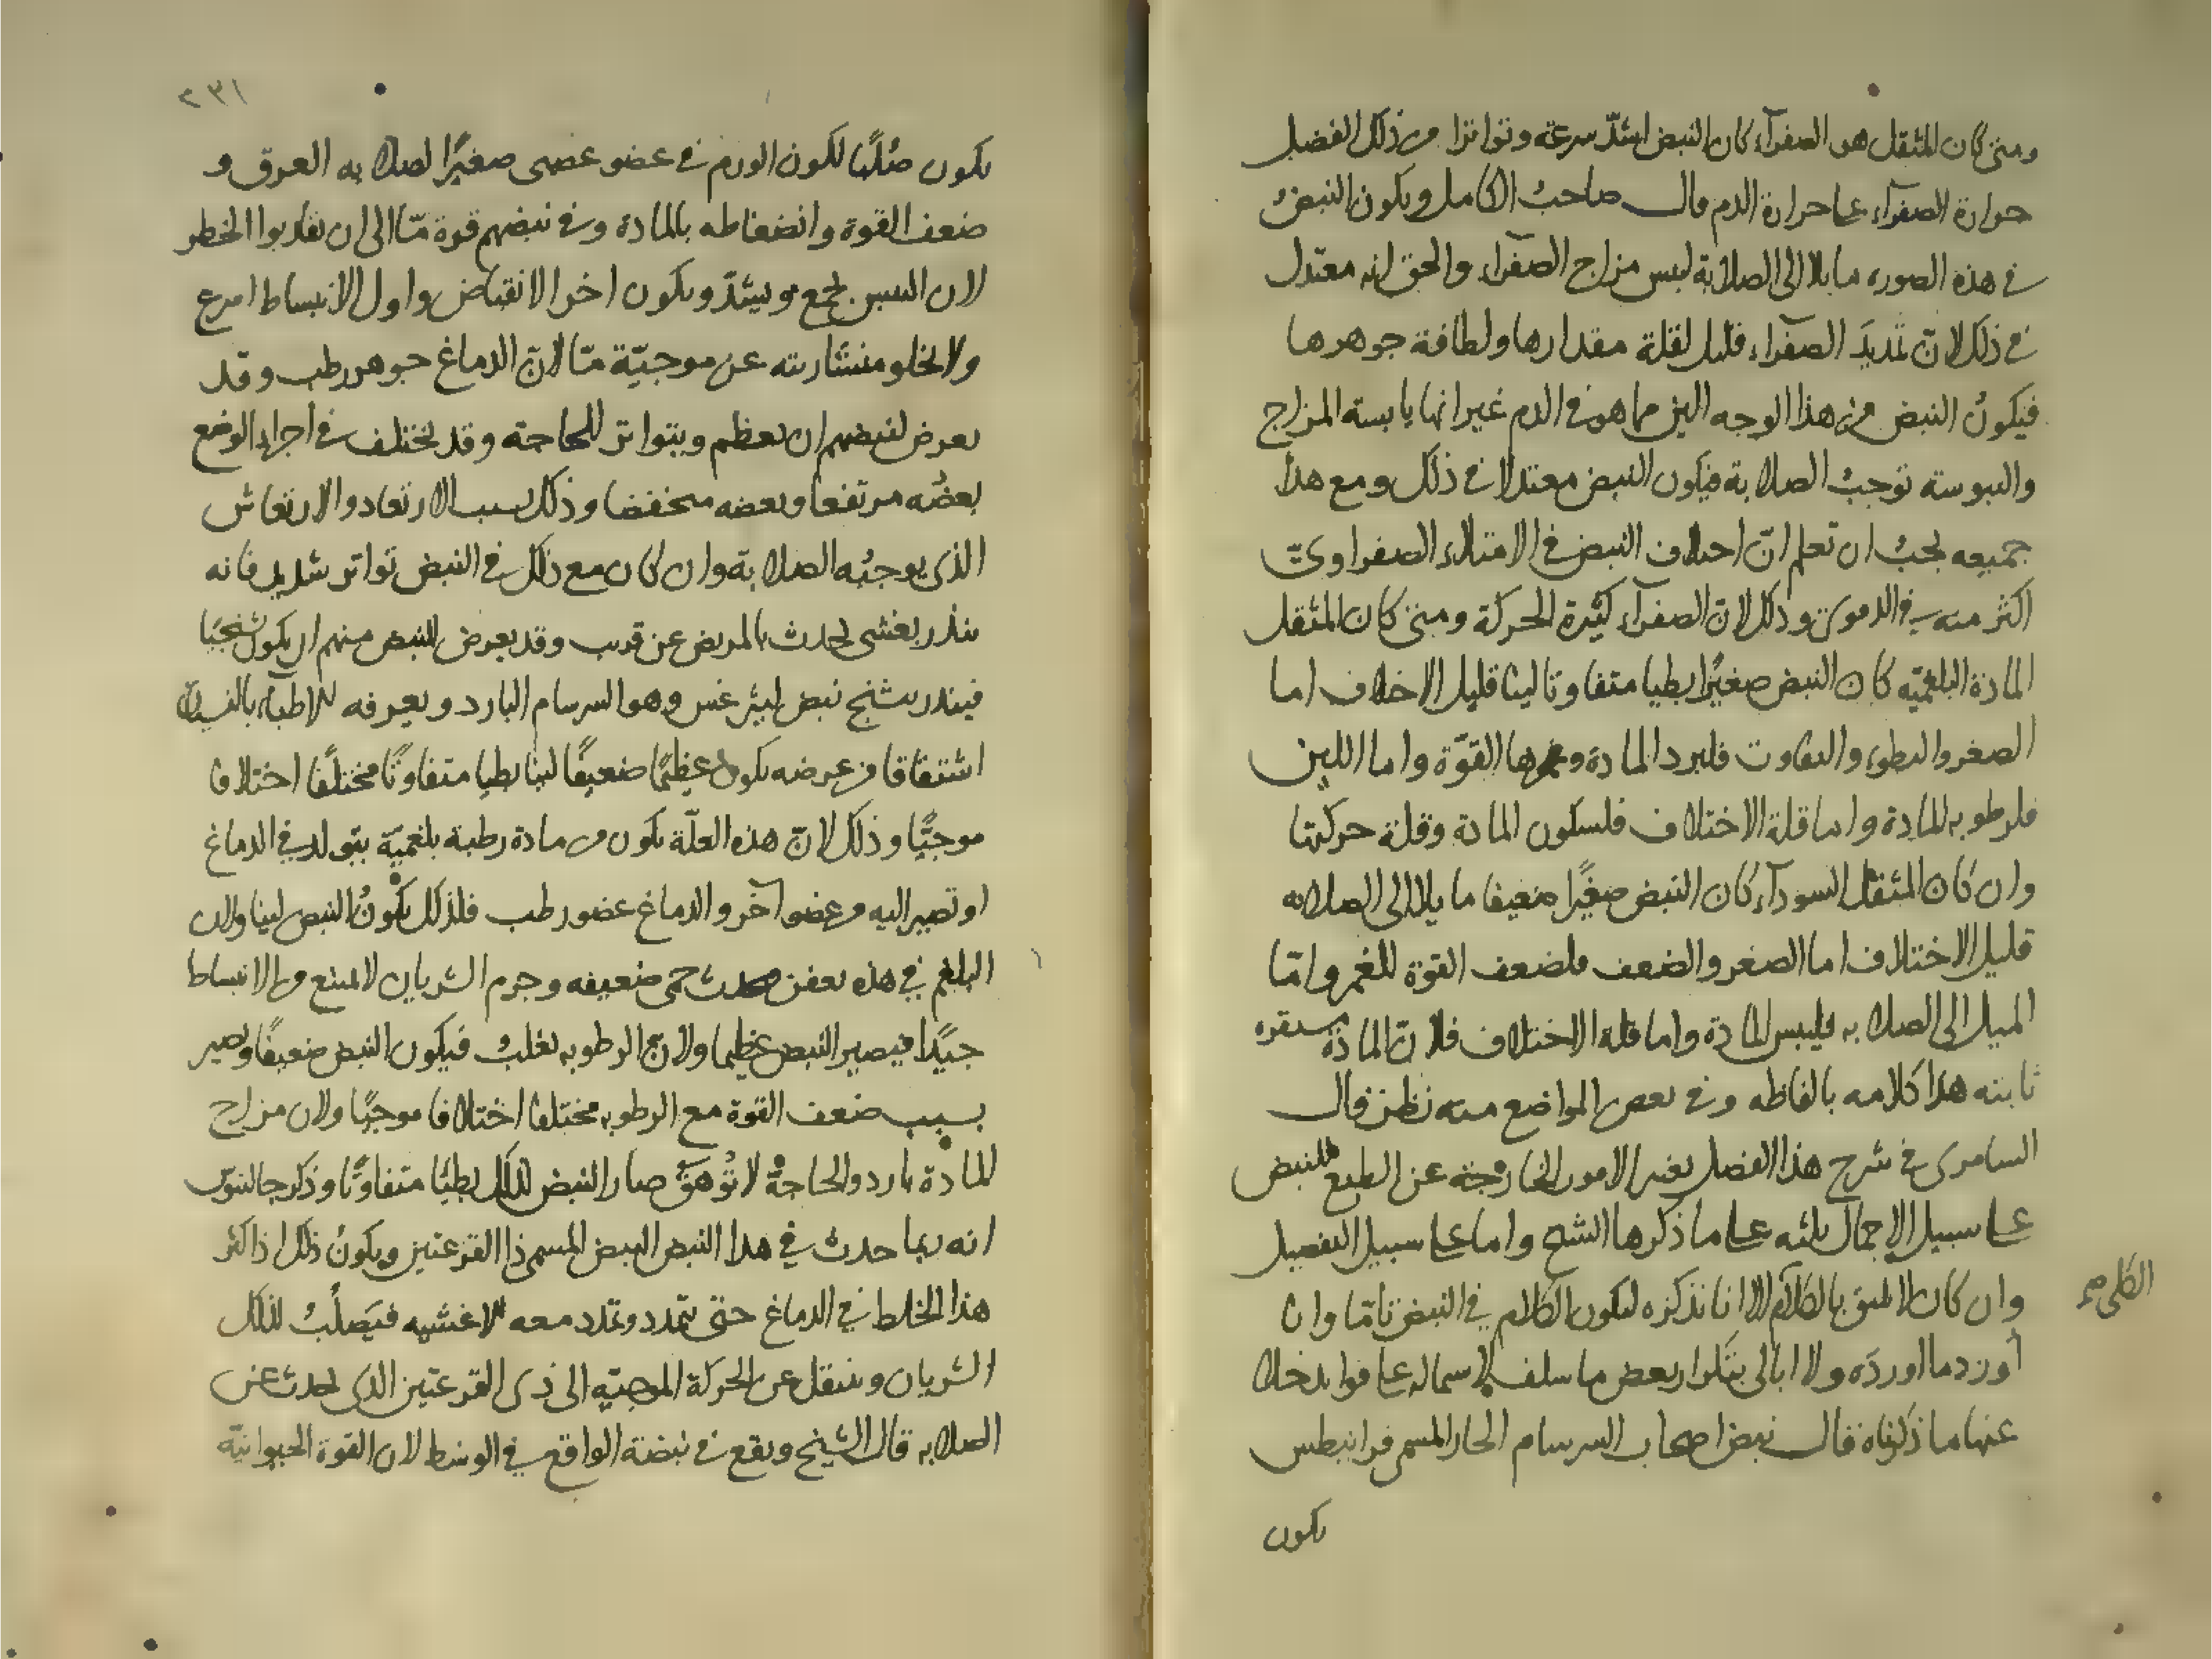 ومتى كان المثقل هو الصفرآء كان النبض اشدّ سرعة وتواترا من ذلك لفضل
حرارة الصفرآء على حرارة الدم قال صاحبُ الكامل ويكون النبضُ
في هذه الصوره مايلا الى الصلابة ليبس مزاج الصفراء والحق انه معتدل
في ذلك لانّ تمديدَ الصفرآء قليل لقلة مقدارها ولطافة جوهرها
فيكونُ النبض من هذا الوجه الين مما هو في الدم غير انها يابسة المزاج
واليبوسة توجبُ الصلابة فيكون النبض معتدلا في ذلك ومع هذا
جميعه يجبُ ان تعلم انّ اختلاف النبض في الامتلاء الصفراويّ
اكثر منه في الدموى وذلك لانّ الصفرآء كثيرة الحركة ومتى كان المثقل
المادة البلغميّه كان النبض صغيرًا بطيا متفاوتا لينا قليل الاختلاف اما
الصغر والبطوء والتفاوت فلبرد المادة وغمرها القوّة واما اللين
فلرطوبه المادة واما قلة الاختلاف فلسكون المادة وقلة حركتها
وان كان المثقل السودآء كان النبض صغيرًا ضعيفا مايلا الى الصلابه
قليل الاختلاف اما الصغر والضعف فلضعف القوة للغمر وامّا
الميل الى الصلابه فليبس المادة واما قلة الاختلاف فلانّ المادّة مستقره
ثابته هذا كلامه بالفاظه وفي بعض المواضع منه نظر قال
السامرى في شرح هذا الفصل تغير الامور الخارجة عن الطبع للنبض
على سبيل الاجمال ثلثه على ما ذكرها الشيخ واما على سبيل التفصيل
وان كان لا يليق بالكلام الا انا نذكره ليكون الكلام في النبض تامّا وان
الكلى صح
أورد ما اورده ولا ابالى بتكرار بعض ما سلف لاشتماله على فوايد خلا
عنها ما ذكرناه فقال نبض اصحاب السرسام الحار المسمى فرانيطس
يكون
٢٣١
يكون صُلبًا لكون الورم في عضو عصبى صغيرًا لصلابه العرق و
ضعف القوة وانضغاطه بالمادة وفي نبضهم قوة مّا الى ان يقاربوا الخطر
لان اليبس يجمع ويشدّ ويكون اخر الانقباض واول الانبساط اسرع
ولا يخلو منشاريته عن موجيّة مّا لانّ الدماغ جوهر رطب وقد
يعرض لنبضهم ان يعظم ويتواتر للحاجة وقد يختلف في اجزاء الوضع
بعضُه مرتفعا وبعضه منخفضا وذلك بسبب الارتعاد والارتعاش
الذى يوجبُه الصلابة وان كان مع ذلك في النبض تواتر شديد فانه
ينذر بغشى يحدث بالمريض عن قريب وقد يعرض للنبض منهم ان يكون تشنجيًا
فينذر بتشنج نبض ليثرغس وهو السرسام البارد ويعرفه الاطبآء بالنسيان
اشتقاقا من عرضه يكون عظيمًا ضعيفًا لينا بطيا متفاوتًا مختلفًا اختلافا
موجيًّا وذلك لانّ هذه العلّة يكون من مادة رطبة بلغميّة يتولد في الدماغ
او تصير اليه من عضو آخر والدماغ عضو رطب فلذلك يكونُ النبض لينا ولان
البلغم في هذه يعفن فيحدث حمى ضعيفه وجرم الشريان لا يمتنع من الانبساط
جيّدا فيصير النبض عظيما ولانّ الرطوبه تغلبُ فيكون النبض ضعيفًا ويصير
بسبب ضعف القوة مع الرطوبه مختلفا اختلافا موجيًا ولان مزاج
المادة بارد والحاجةُ لا تُرهق صار النبض لذلك بطيًا متفاوتًا وذكر جالينوس
انه ربما حدث في هذا النبض النبض المسمى ذا القرعتين ويكونُ ذلك اذا كثر
هذا الخلط في الدماغ حتى يتمدد وتمدد معه الاغشيه فيَصلُبُ لذلك
الشريان وينتقل عن الحركة الموجيّه الى ذى القرعتين الذى يحدث عن
الصلابه قال الشيخ ويقع في نبضة الواقع في الوسط لان القوة الحيوانيّة